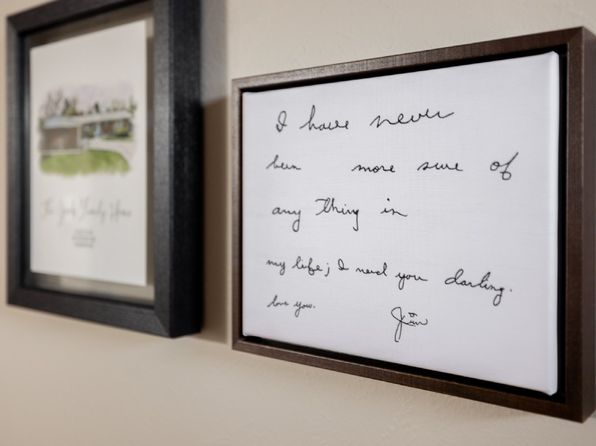 The York Family Home
I have never
been more sure of
any Thing in
my life; I need you darling.
love you.
Jim